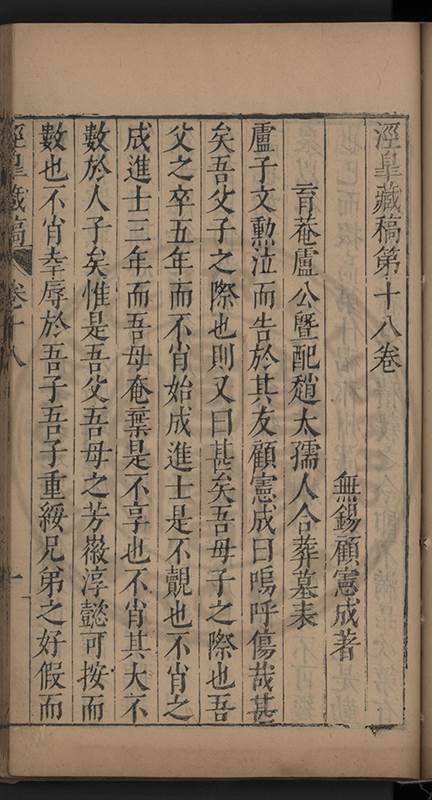 涇臯藏稿第十八卷
無錫顧憲成著
育菴盧公曁配趙太孺人合葬墓表
盧子文勳泣而告於其友顧憲成曰嗚呼傷哉甚
矣吾父子之際也則又曰甚矣吾母子之際也吾
父之卒五年而不肖始成進士是不覿也不肖之
成進士三年而吾母奄棄是不享也不肖其大不
數於人子矣惟是吾父吾母之芳徽淳懿可按而
數也不肖幸辱於吾子吾子重綏兄弟之好假而
涇臯藏稿 卷十八 一